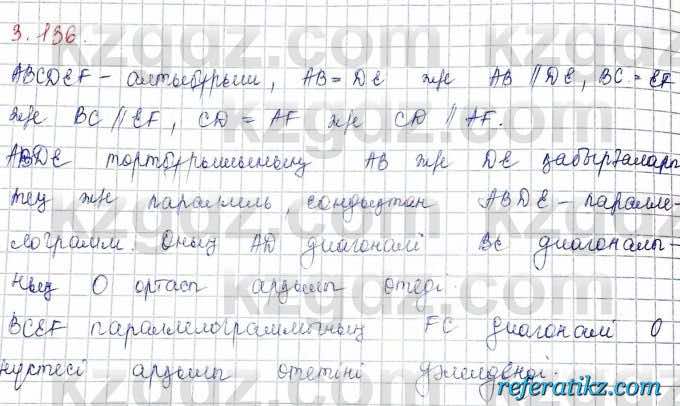 3.136.
ABCDEF - алтыбұрыш, AB = DE және AB // DE, BC = EF
және BC // EF, CD = AF және CD // AF.
ABDE төртбұрышының AB және DE қабырғалары
тең және параллель, сондықтан ABDE - паралле-
лограмм. Оның AD диагоналі BE диагоналы-
ның O ортасы арқылы өтеді.
BCEF параллелограммының FC диагоналі O
нүктесі арқылы өтетіні дәлелденді.
kzgdz.com
referatikz.com